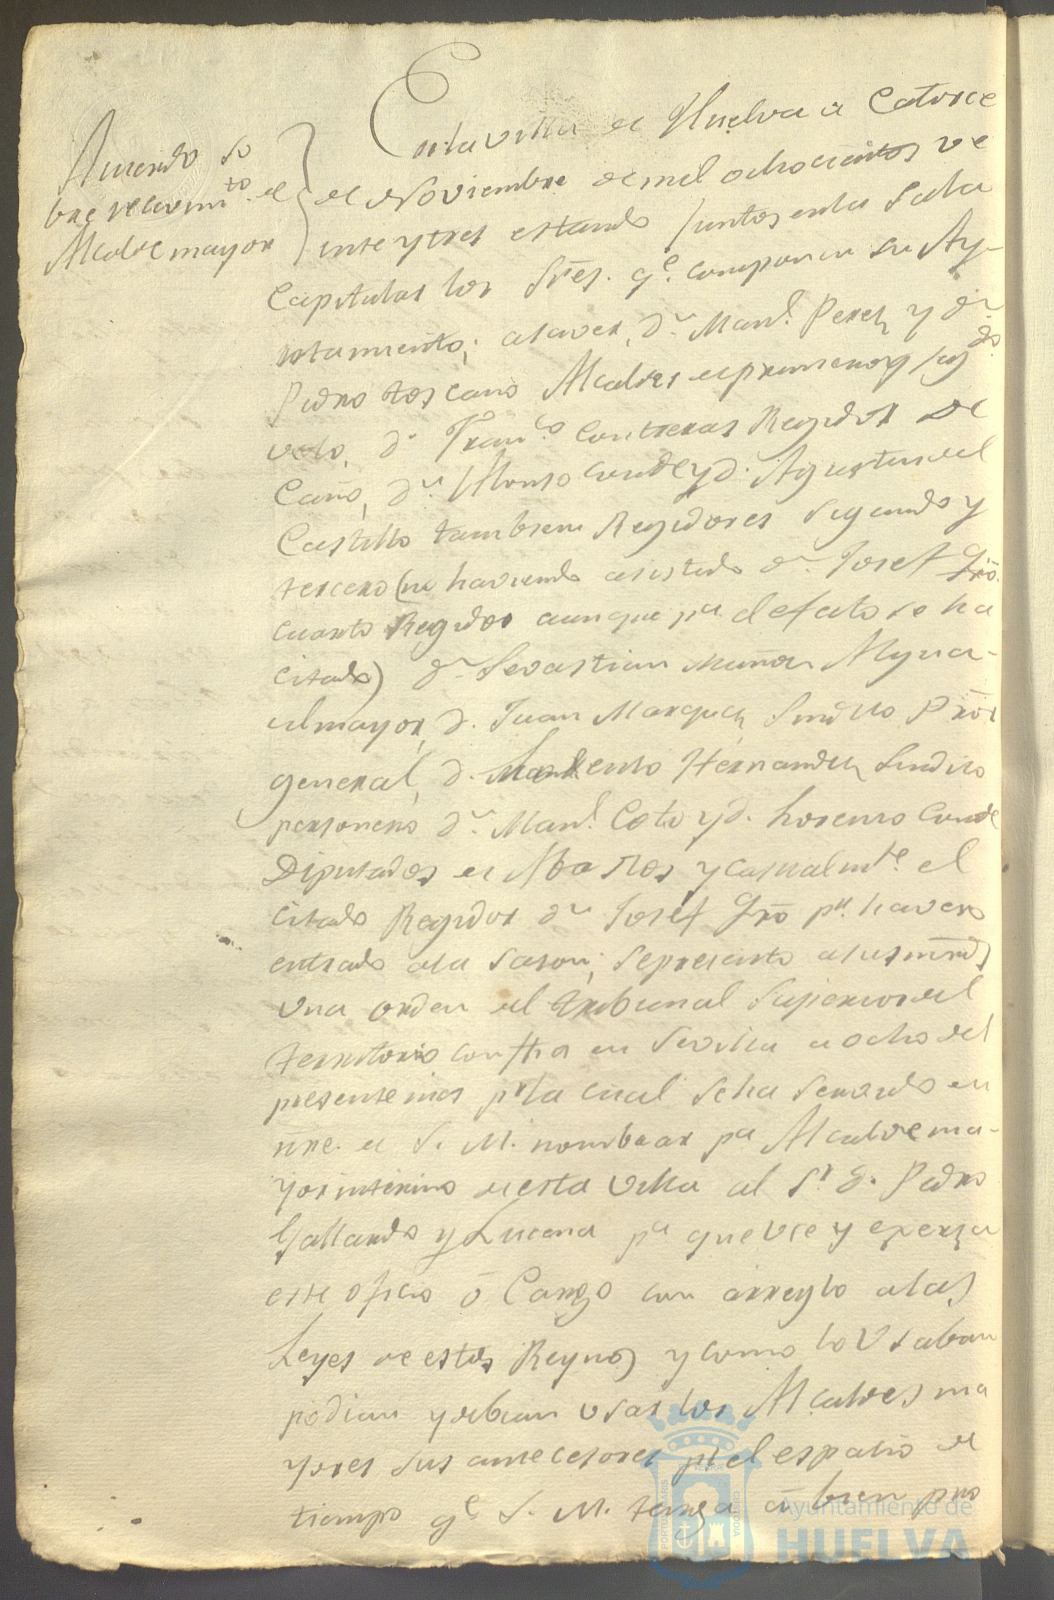 Acuerdo so
bre recivimto. de
Alcalde mayor
En la villa de Huelva a Catorce
de Noviembre de mil ochocientos ve
inte y tres estando Juntos en la Sala
Capitular los Sres. qe. componen su Ay-
ntamiento; a saver, Dn. Manl. Perez y Dn
Pedro Toscano Alcaldes de primero y segdo.
voto, D. Franco Contreras Regidor De
Cano, Dn. Alonso Conde y D. Agustin del
Castillo tambien Regidores Segundo y
tercero (no haviendo asistido Dn. Josef Gro.
cuarto Regidor aunque pa. el efecto se ha
citado) Dn Sevastian Muñoz Algua-
cil mayor, D. Juan Marquez, Sindico Pror
general, D. Lorenzo Hernandez Sindico
personero Dn. Manl. Coto y D. Lorenzo Conde
Diputados de Abastos y casualmte. el
citado Regidor Dn Josef Gro pr. haver
entrado a la sason; se presento a sus mrds
una orden del tribunal Superior del
territorio con fha en Sevilla a ocho del
presente mes pr la cual se ha servido en
nre. de S. M. nombrar pa Alcalde ma-
yor interino de esta Villa al Sr. D. Pedro
Gallardo y Lucena pa que use y exerza
este oficio ó Cargo con arreglo a las
Leyes de estos Reynos y como lo Usaban
podian y debian usar los Alcaldes ma
yores sus antecesores pr el espacio de
tiempo qe S. M. tenga á bien pro
Ayuntamiento de
HUELVA